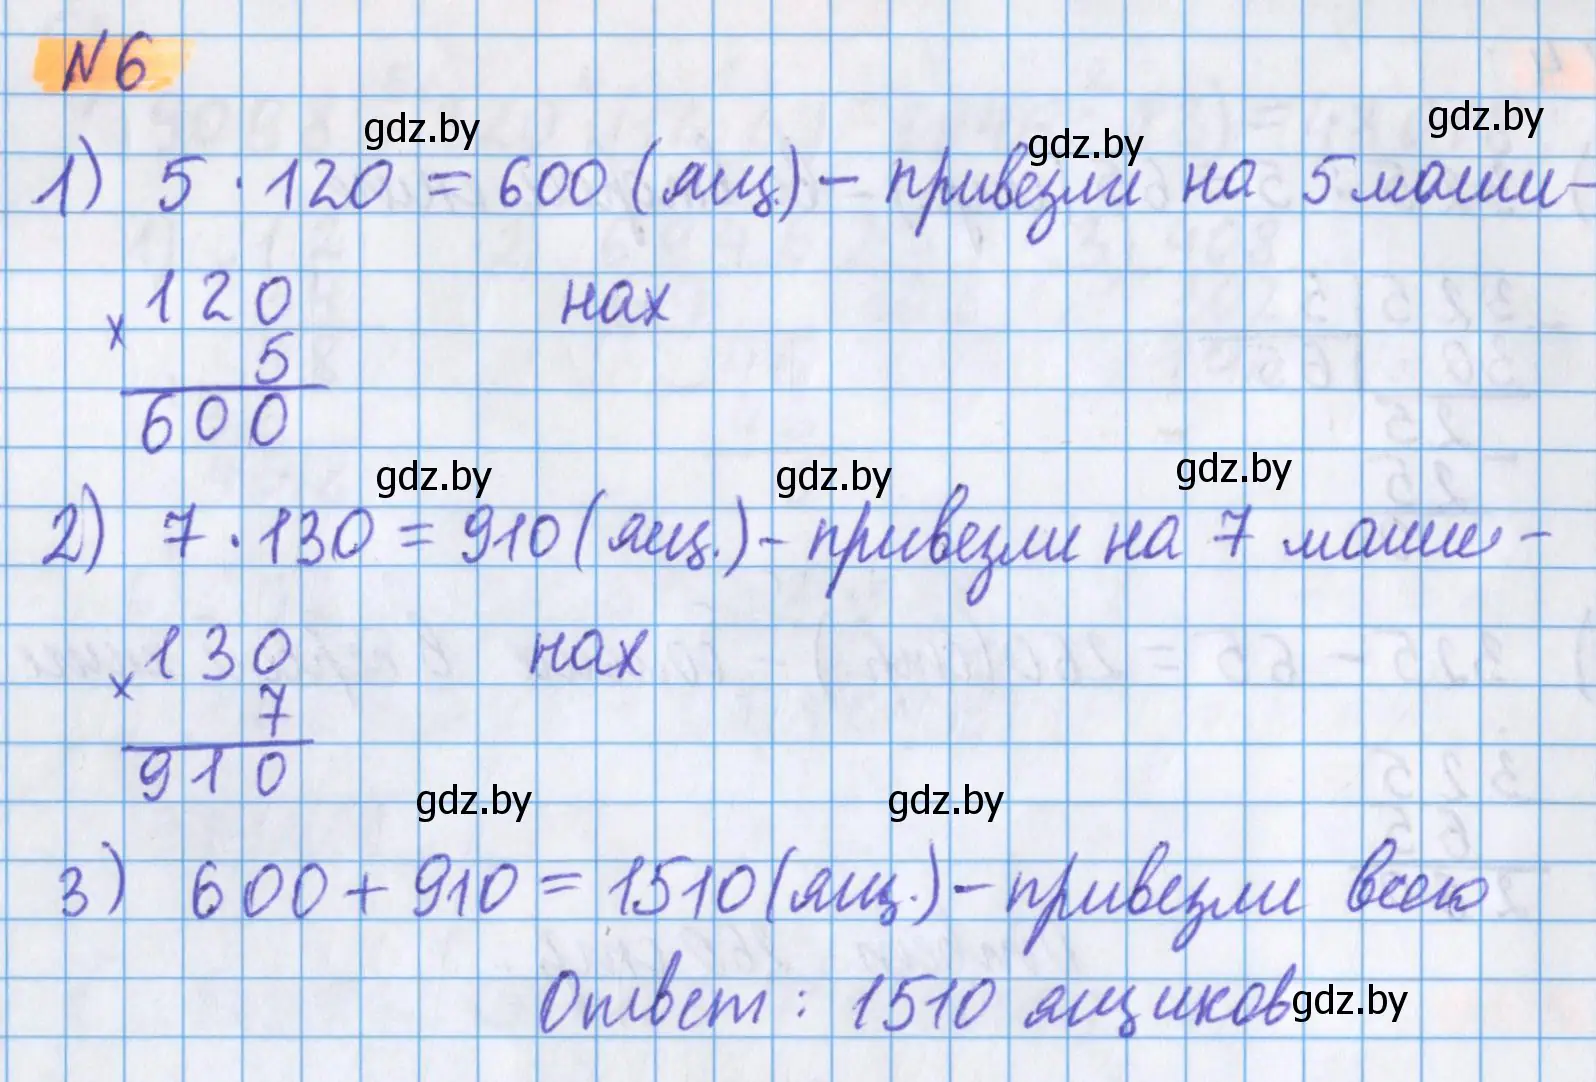 N 6
gdz.by
gdz.by
gdz.by
1) 5 · 120 = 600 (ящ.) - привезли на 5 маши-
нах
x 120
5
600
gdz.by
gdz.by
gdz.by
2) 7 · 130 = 910 (ящ.) - привезли на 7 маши-
нах
x 130
7
910
gdz.by
gdz.by
3) 600 + 910 = 1510 (ящ.) - привезли всего
Ответ: 1510 ящиков
gdz.by